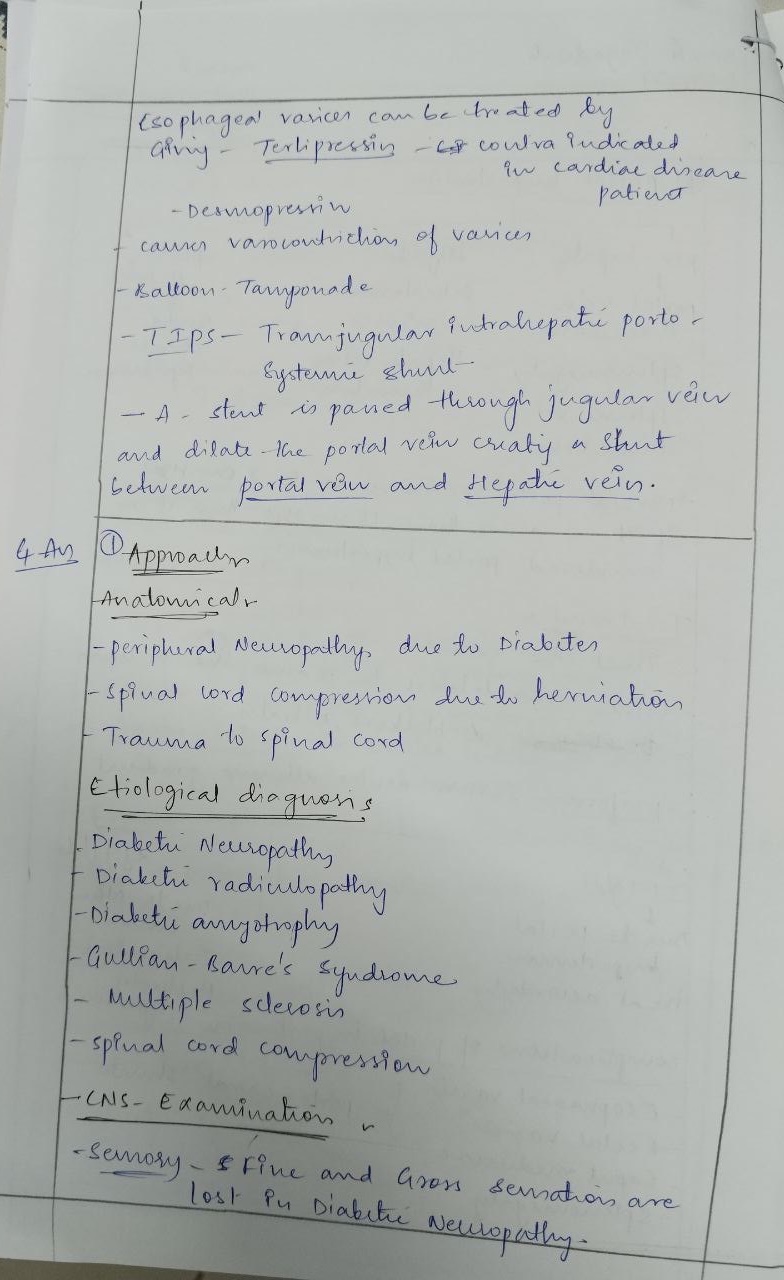 Esophageal varices can be treated by
Giving - Terlipressin - contra indicated
in cardiac disease
patient
- Desmopressin
- causes vasoconstriction of varices
- Balloon - Tamponade
- TIPS - Transjugular intrahepatic porto -
Systemic shunt
- A - stent is passed through jugular vein
and dilate the portal vein creating a Shunt
between portal vein and Hepatic vein.
4 Ans ① Approach
Anatomical
- peripheral Neuropathy due to Diabetes
- Spinal cord compression due to herniation
- Trauma to spinal cord
Etiological diagnosis
- Diabetic Neuropathy
- Diabetic radiculopathy
- Diabetic amyotrophy
- Gullian - Barre's Syndrome
- Multiple sclerosis
- spinal cord compression
- CNS - Examination
- Sensory - Fine and Gross sensation are
lost in Diabetic Neuropathy.